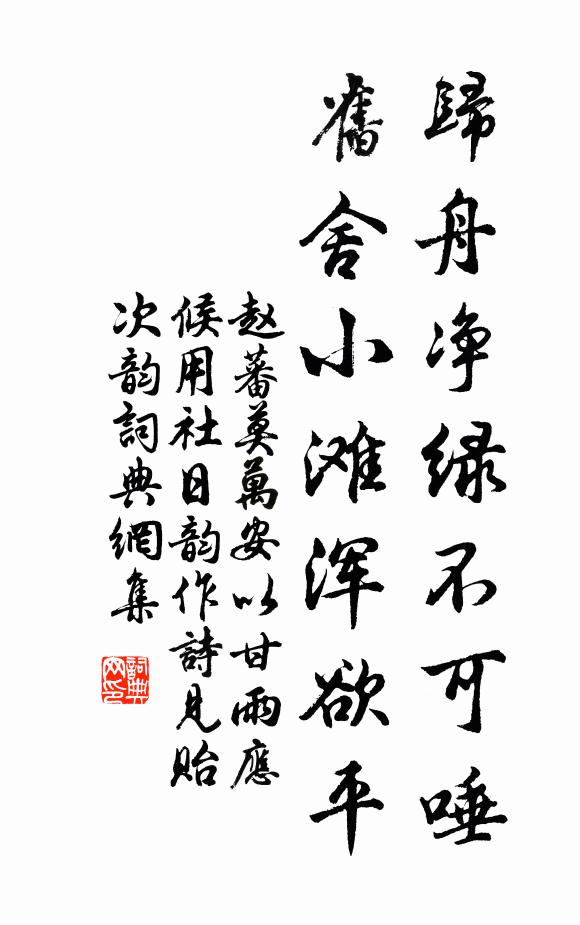 歸舟净绿不可唾
舊舍小滩浑欲平
赵蕃莫萬安以甘雨應
候用社日韵作詩見貽
次韵詞典網集
詞典網印